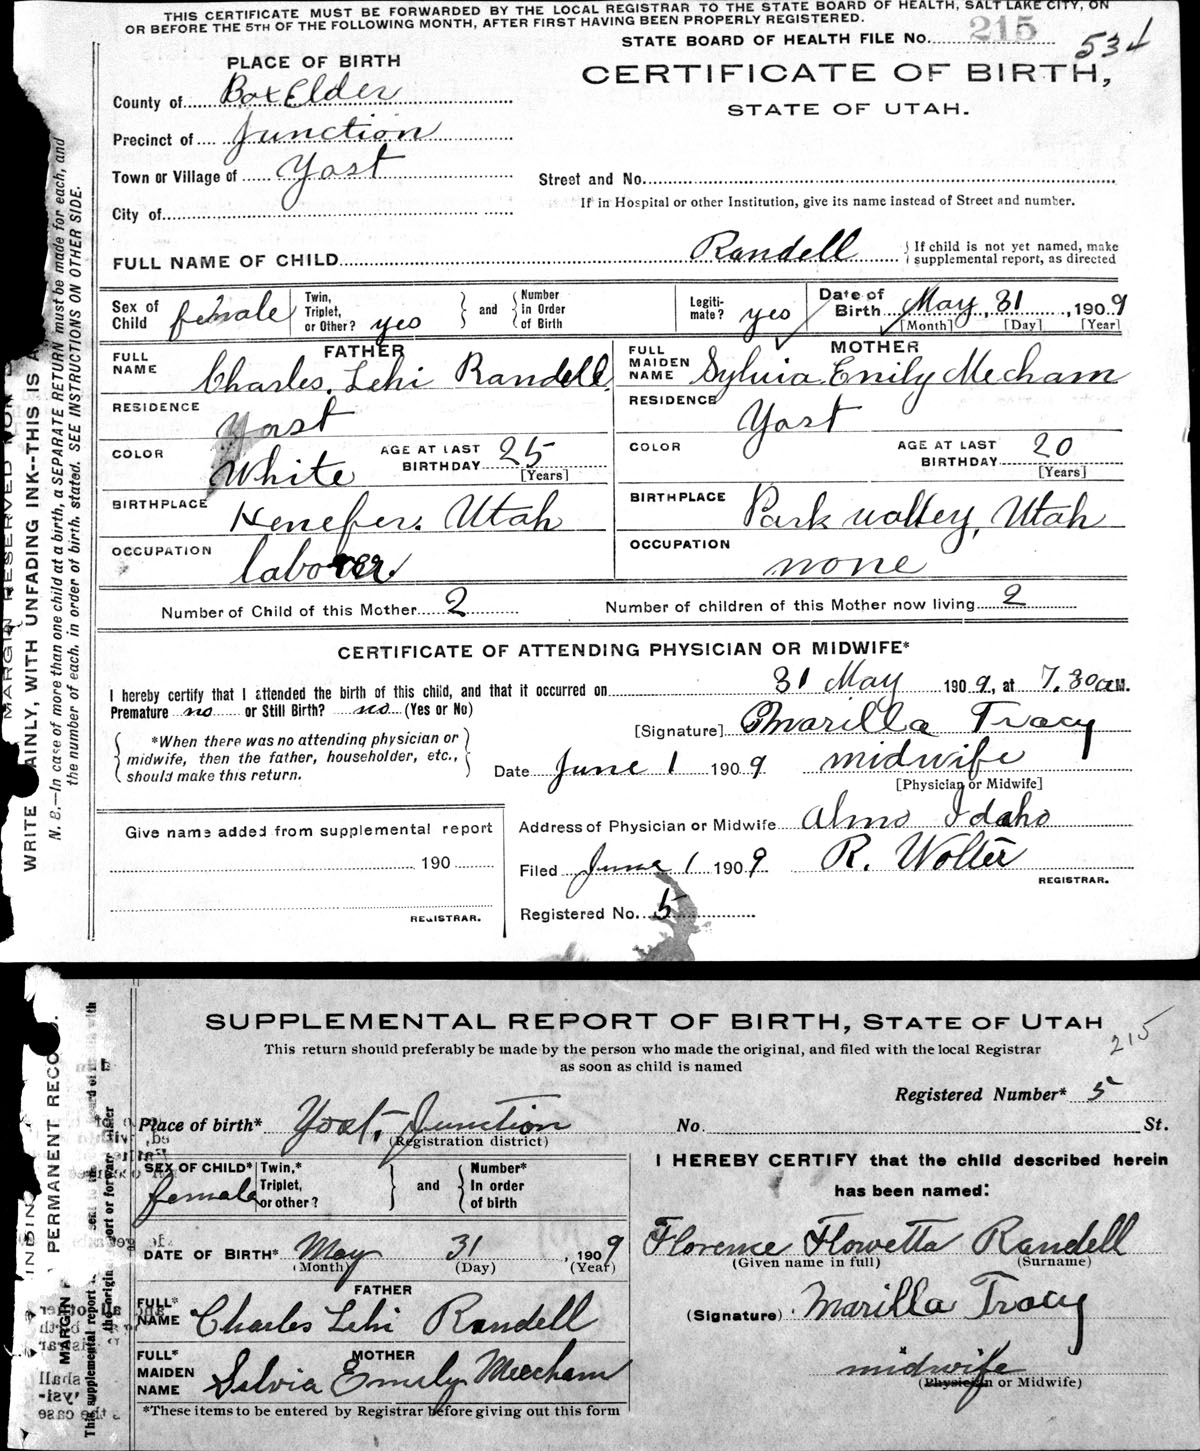 THIS CERTIFICATE MUST BE FORWARDED BY THE LOCAL REGISTRAR TO THE STATE BOARD OF HEALTH, SALT LAKE CITY, ON
OR BEFORE THE 5TH OF THE FOLLOWING MONTH, AFTER FIRST HAVING BEEN PROPERLY REGISTERED.
STATE BOARD OF HEALTH FILE No. 215
534
PLACE OF BIRTH
CERTIFICATE OF BIRTH,
STATE OF UTAH.
County of Box Elder
Precinct of Junction
Town or Village of Yost
Street and No.
City of
If in Hospital or other Institution, give its name instead of Street and number.
FULL NAME OF CHILD Randell
If child is not yet named, make supplemental report, as directed
Sex of Child female
Twin, Triplet, or Other? yes
and
Number in Order of Birth
Legiti-mate? yes
Date of Birth May 31, 1909
[Month] [Day] [Year]
FATHER
FULL NAME Charles Lehi Randell
MOTHER
FULL MAIDEN NAME Sylvia Emily Mecham
RESIDENCE Yost
RESIDENCE Yost
COLOR White
AGE AT LAST BIRTHDAY 25
[Years]
COLOR
AGE AT LAST BIRTHDAY 20
[Years]
BIRTHPLACE Henefer, Utah
BIRTHPLACE Park valley, Utah
OCCUPATION laborer
OCCUPATION none
Number of Child of this Mother 2
Number of children of this Mother now living 2
CERTIFICATE OF ATTENDING PHYSICIAN OR MIDWIFE*
I hereby certify that I attended the birth of this child, and that it occurred on 31 May 1909, at 7.30 a M.
Premature no or Still Birth? no (Yes or No)
[Signature] Marilla Tracy
*When there was no attending physician or
midwife, then the father, householder, etc.,
should make this return.
Date June 1 1909 midwife
[Physician or Midwife]
Give name added from supplemental report
190
REGISTRAR.
Address of Physician or Midwife Almo Idaho
Filed June 1 1909 R. Wolter
REGISTRAR.
Registered No. 5
N. B.—In case of more than one child at a birth, a SEPARATE RETURN must be made for each, and
the number of each, in order of birth, stated. SEE INSTRUCTIONS ON OTHER SIDE.
AINLY, WITH UNFADING INK--THIS IS A
WRITE
MARGIN RESERVED
SUPPLEMENTAL REPORT OF BIRTH, STATE OF UTAH
215
This return should preferably be made by the person who made the original, and filed with the local Registrar
as soon as child is named
Registered Number* 5
Place of birth* Yost, Junction
(Registration district)
No. St.
SEX OF CHILD* female
Twin,* Triplet, or other?
and
Number* In order of birth
DATE OF BIRTH* May 31, 1909
(Month) (Day) (Year)
FATHER
FULL* NAME Charles Lehi Randell
MOTHER
FULL* MAIDEN NAME Silvia Emily Meecham
*These items to be entered by Registrar before giving out this form
I HEREBY CERTIFY that the child described herein
has been named:
Florence Flowetta Randell
(Given name in full) (Surname)
(Signature) Marilla Tracy
midwife
(Physician or Midwife)
PERMANENT RECO
MARGIN